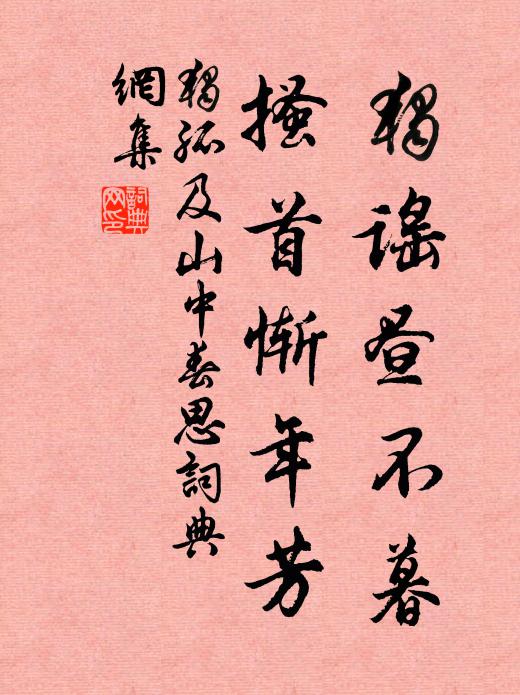 獨謠昼不暮
搔首慚年芳
獨孤及山中春思詞典
網集
詞典
网印